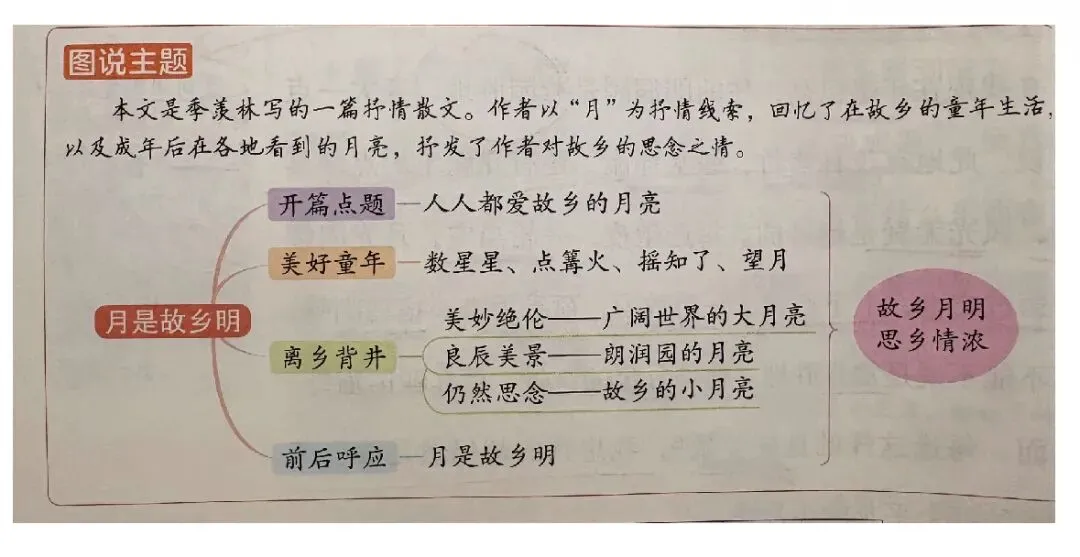 图说主题
本文是季羡林写的一篇抒情散文。作者以“月”为抒情线索，回忆了在故乡的童年生活，
以及成年后在各地看到的月亮，抒发了作者对故乡的思念之情。
月是故乡明
开篇点题 — 人人都爱故乡的月亮
美好童年 — 数星星、点篝火、摇知了、望月
离乡背井
美妙绝伦——广阔世界的大月亮
良辰美景——朗润园的月亮
仍然思念——故乡的小月亮
前后呼应 — 月是故乡明
故乡月明
思乡情浓